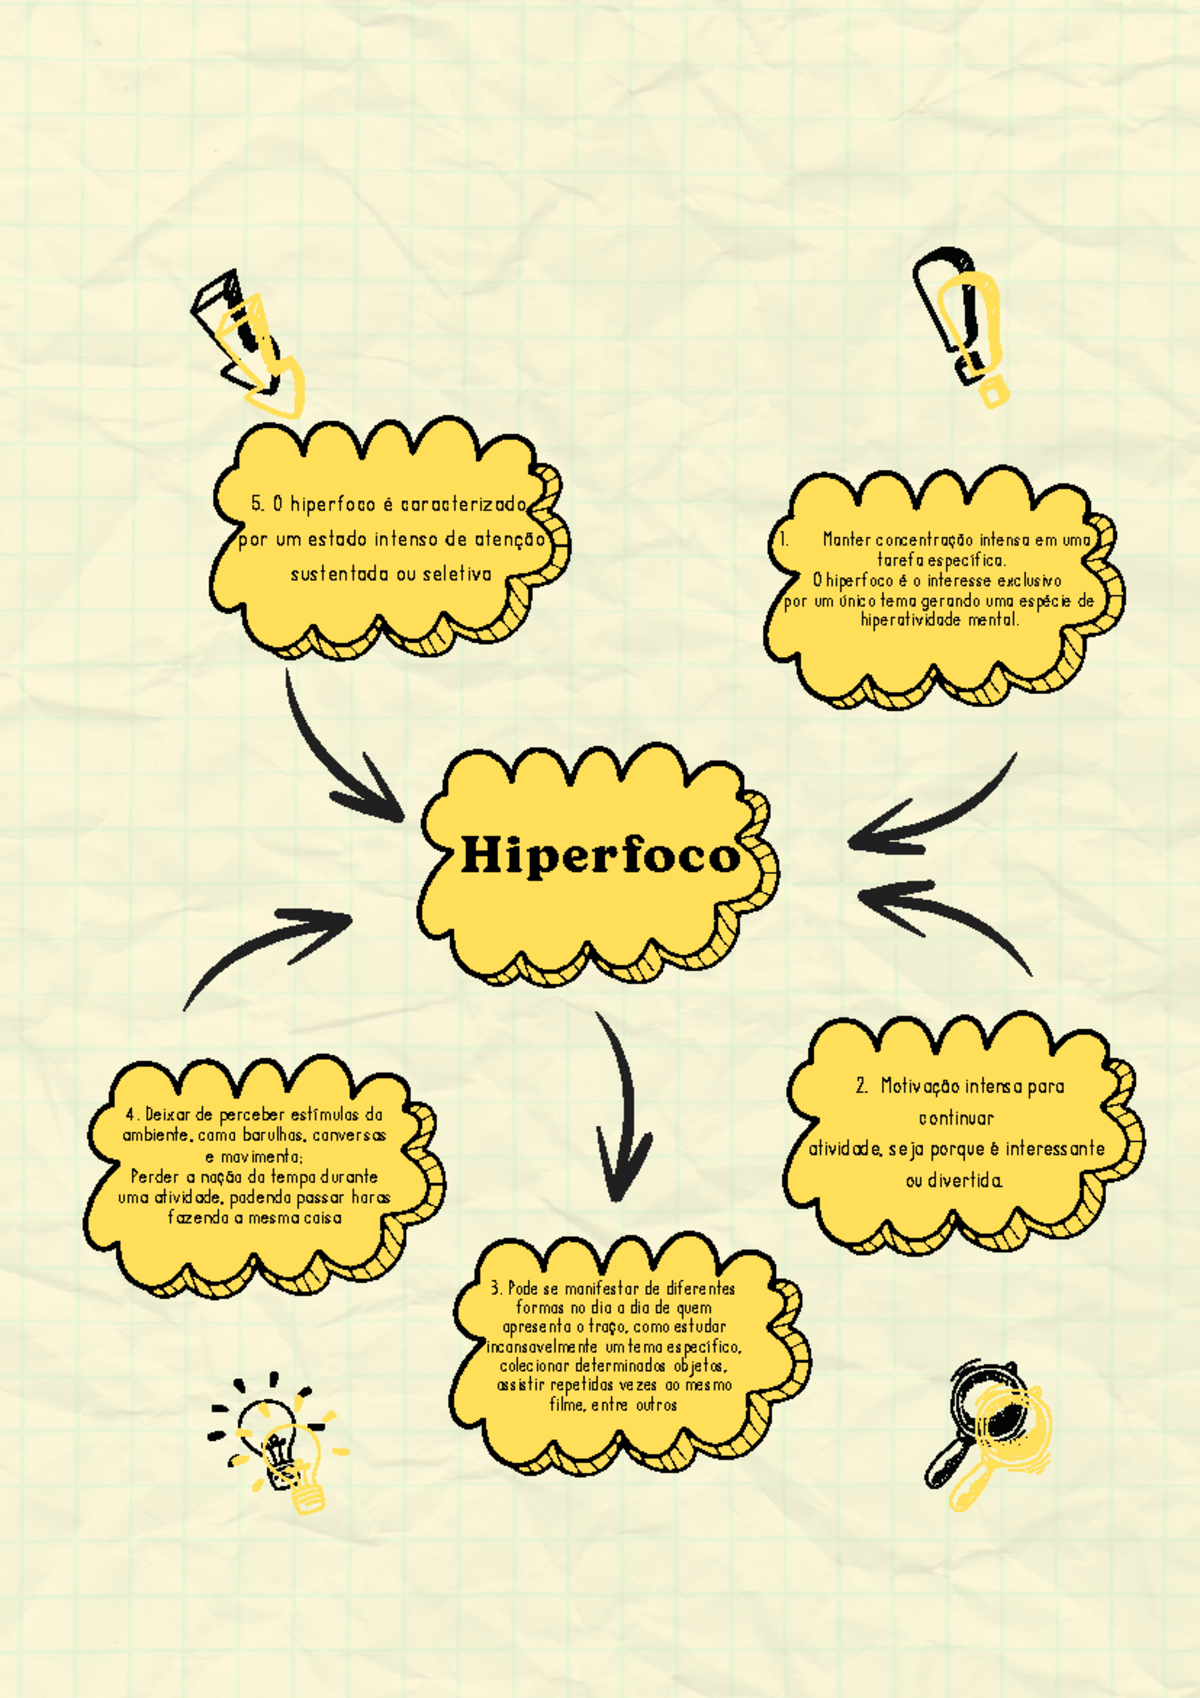 5. O hiperfoco é caracterizado
por um estado intenso de atenção
sustentada ou seletiva
1. Manter concentração intensa em uma
tarefa específica.
O hiperfoco é o interesse exclusivo
por um único tema gerando uma espécie de
hiperatividade mental.
Hiperfoco
2. Motivação intensa para
continuar
atividade, seja porque é interessante
ou divertida
4. Deixar de perceber estímulos do
ambiente, como barulhos, conversas
e movimento;
Perder a noção do tempo durante
uma atividade, podendo passar horas
fazendo a mesma coisa
3. Pode se manifestar de diferentes
formas no dia a dia de quem
apresenta o traço, como estudar
incansavelmente um tema específico,
colecionar determinados objetos,
assistir repetidas vezes ao mesmo
filme, entre outros